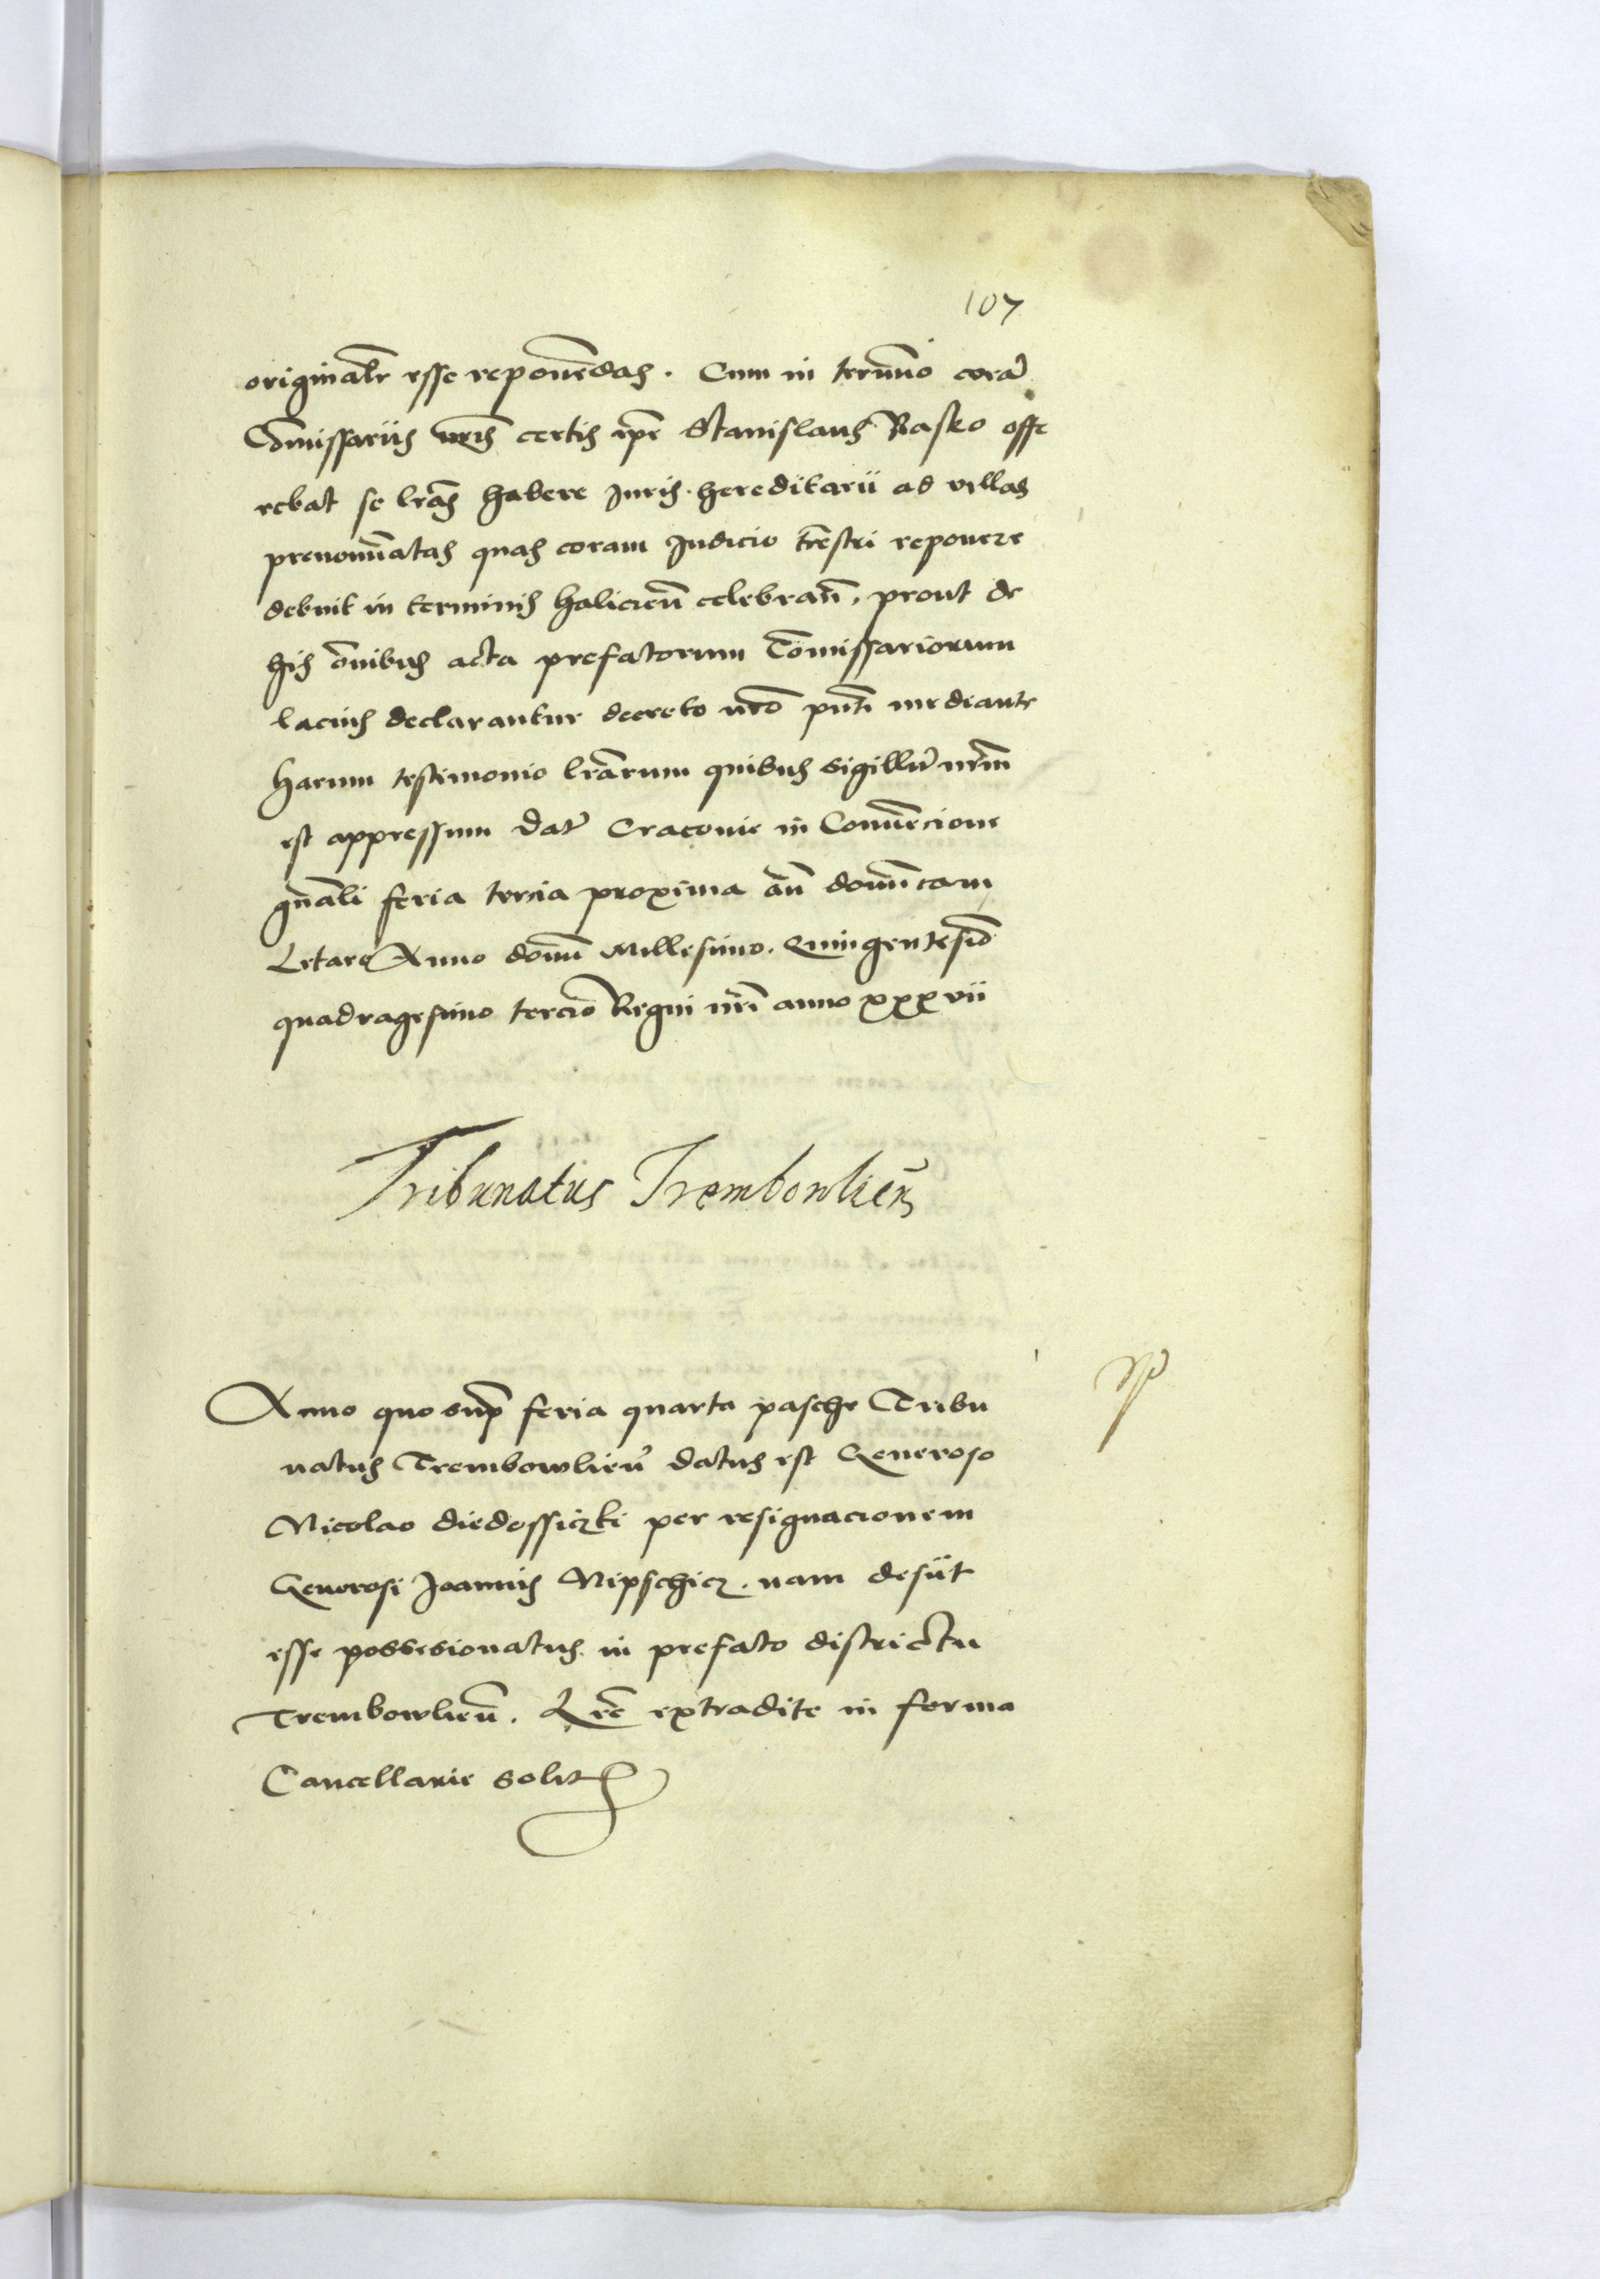 107
originalr̄ esse reponēdas. Cum in termīo corā
Cōmissariis nr̄is certis ip̄e Stanislaus Rasko offe
rebat se lrās habere Juris hereditarii ad villas
prenomīatas quas coram Judicio trēstri reponere
debuit in terminis haliciēn celebran̄. prout de
his ōnibus acta prefatorum Cōmissariorum
lacius declarantur decreto nr̄o pn̄ti mediante
harum testimonio lrārum quibus sigillū nr̄m
est appressum dat̄ Cracovie in Convēcione
gn̄ali feria tercia proxima an̄ domīcam
Letare Anno domī Millesimo. Quingentesiō
quadragesimo tercio Regni nr̄i anno xxxvii
Tribunatus Trembowlien̄
Anno quo sup̄ feria quarta pasche Tribu
natus Trembowlien̄ datus est Generoso
Nicolao diedossiczki per resignacionem
Generosi Joannis Nipschicz. nam desiit
esse possesionatus in prefato districtu
Trembowlien̄. Lrē extradite in forma
Cancellarie solit